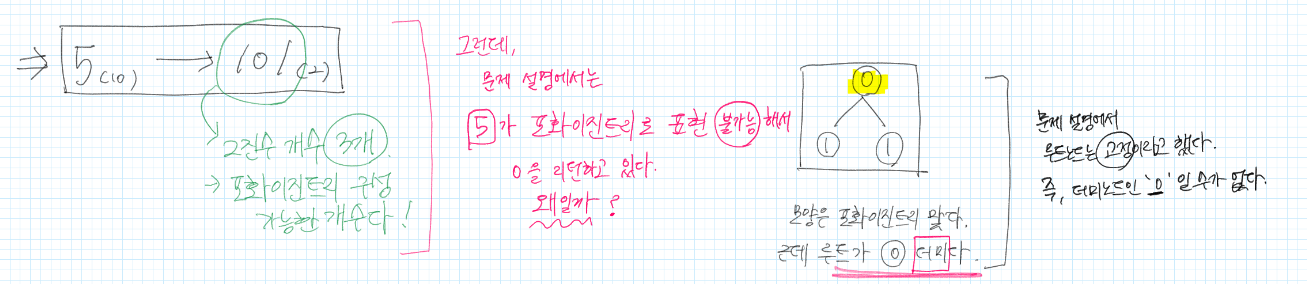 ⇒ 5(10) → 101(2)
2진수 개수 3개.
→ 포화이진트리 구성
가능한 개수다!
그런데,
문제 설명에서는
5가 포화이진트리로 표현 불가능해서
0을 리턴하고 있다.
왜일까?
0
1 1
모양은 포화이진트리 맞다.
근데 루트가 0 더미다.
문제 설명에서
루트노드는 고정이라고 했다.
즉, 더미노드인 '0'일 수가 없다.